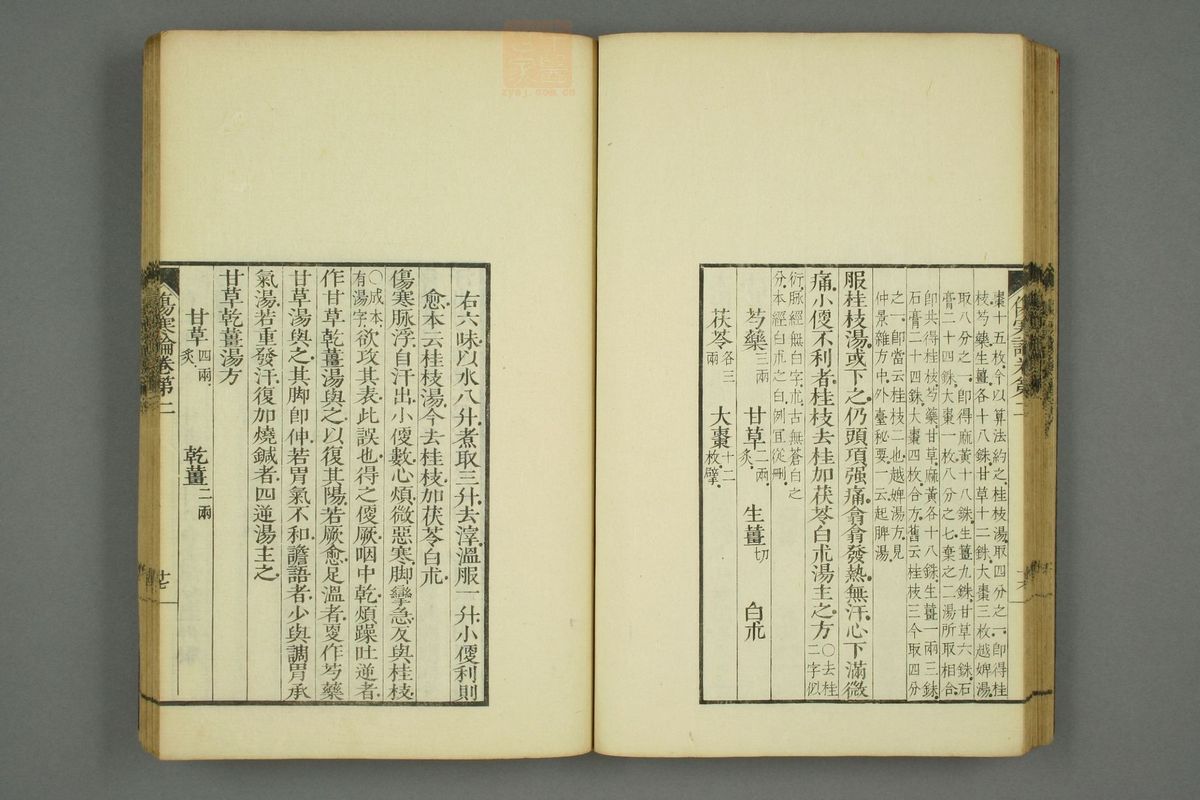 棗十五枚今以算法約之桂枝湯取四分之一即得桂
枝芍藥生薑各十八銖甘草十二銖大棗三枚越婢湯
取八分之一即得麻黃十八銖生薑九銖甘草六銖石
膏二十四銖大棗一枚八分之七棄之二湯所取相合
即共得桂枝芍藥甘草麻黃各十八銖生薑一兩三銖
石膏二十四銖大棗四枚合方舊云桂枝三今取四分
之一即當云桂枝二也越婢湯方見
仲景雜方中外臺秘要一云起脾湯
服桂枝湯或下之仍頭項强痛翕翕發熱無汗心下滿微
痛小便不利者桂枝去桂加茯苓白朮湯主之方
○去桂
二字似
衍脈經無白字朮古無蒼白之
分本經白朮之白例宜從刪
芍藥三兩 甘草二兩炙 生薑切 白朮
茯苓各三兩 大棗十二枚擘
傷寒論卷第二
廿六
右六味以水八升煮取三升去滓溫服一升小便利則
愈本云桂枝湯今去桂枝加茯苓白朮
傷寒脉浮自汗出小便數心煩微惡寒脚攣急反與桂枝
○成本
有湯字
欲攻其表此誤也得之便厥咽中乾煩躁吐逆者
作甘草乾薑湯與之以復其陽若厥愈足溫者更作芍藥
甘草湯與之其脚即伸若胃氣不和讝語者少與調胃承
氣湯若重發汗復加燒鍼者四逆湯主之
甘草乾薑湯方
甘草四兩炙 乾薑二兩
傷寒論卷第二
廿七
zysj.com.cn